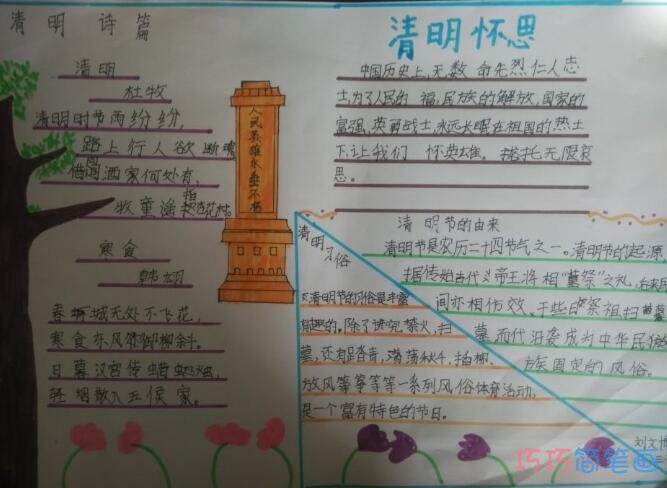 清明诗篇
清明
杜牧
清明时节雨纷纷,
路上行人欲断魂
借问酒家何处有,
牧童遥指杏花村。
寒食
韩翃
春城无处不飞花,
寒食东风御柳斜。
日暮汉宫传蜡烛,
轻烟散入五侯家。
人民英雄永垂不朽
清明怀思
中国历史上,无数 命先烈仁人志
士,为了人民的 福,民族的解放,国家的
富强,英勇战士,永远长眠在祖国的热土
下,让我们 怀英雄。 托无限哀
思。
清明节的由来
清明节是农历二十四节气之一。清明节的起源,
据传始古代 帝王将相“墓祭”之礼,后来民
间亦相仿效。于此日 祭祖扫墓
墓,而代沿袭成为中华民
族固定的风俗。
清明习俗
清明节的习俗是丰富
有趣的。除了讲究禁火,扫
墓,还有踏青,荡荡秋千,插柳。
放风筝等等等一系列风俗体育活动,
是一个富有特色的节日。
刘文
巧巧简笔画